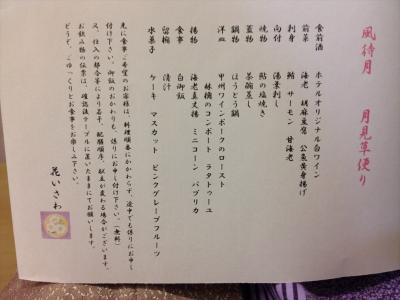 風待月　月見草便り
食前酒　ホテルオリジナル白ワイン
前菜　海老　胡麻豆腐　公魚黄身揚げ
刺身　鮪　サーモン　甘海老
向付　湯葉刺し
焼物　鮎の塩焼き
蓋物　茶碗蒸し
鍋物　ほうとう鍋
洋皿　甲州ワインポークのロースト
林檎のコンポート　ラタトゥーユ
揚物　海老真丈揚　ミニコーン　パプリカ
食事　白御飯
留椀　清汁
水菓子　ケーキ　マスカット　ピンクグレープフルーツ
先に食事ご希望のお客様は、料理順番にかかわらず、途中でも係りにお申し
付け下さい。御飯のおかわりも、係りにお申し付け下さい。（無料）
又、仕入の都合等により若干、配膳順序、献立が変わる場合がございます。
お飲み物の伝票は、確認後テーブルに置いたままにてお願いします。
どうぞ、ごゆっくりとお食事をお楽しみ下さい。
花いさわ